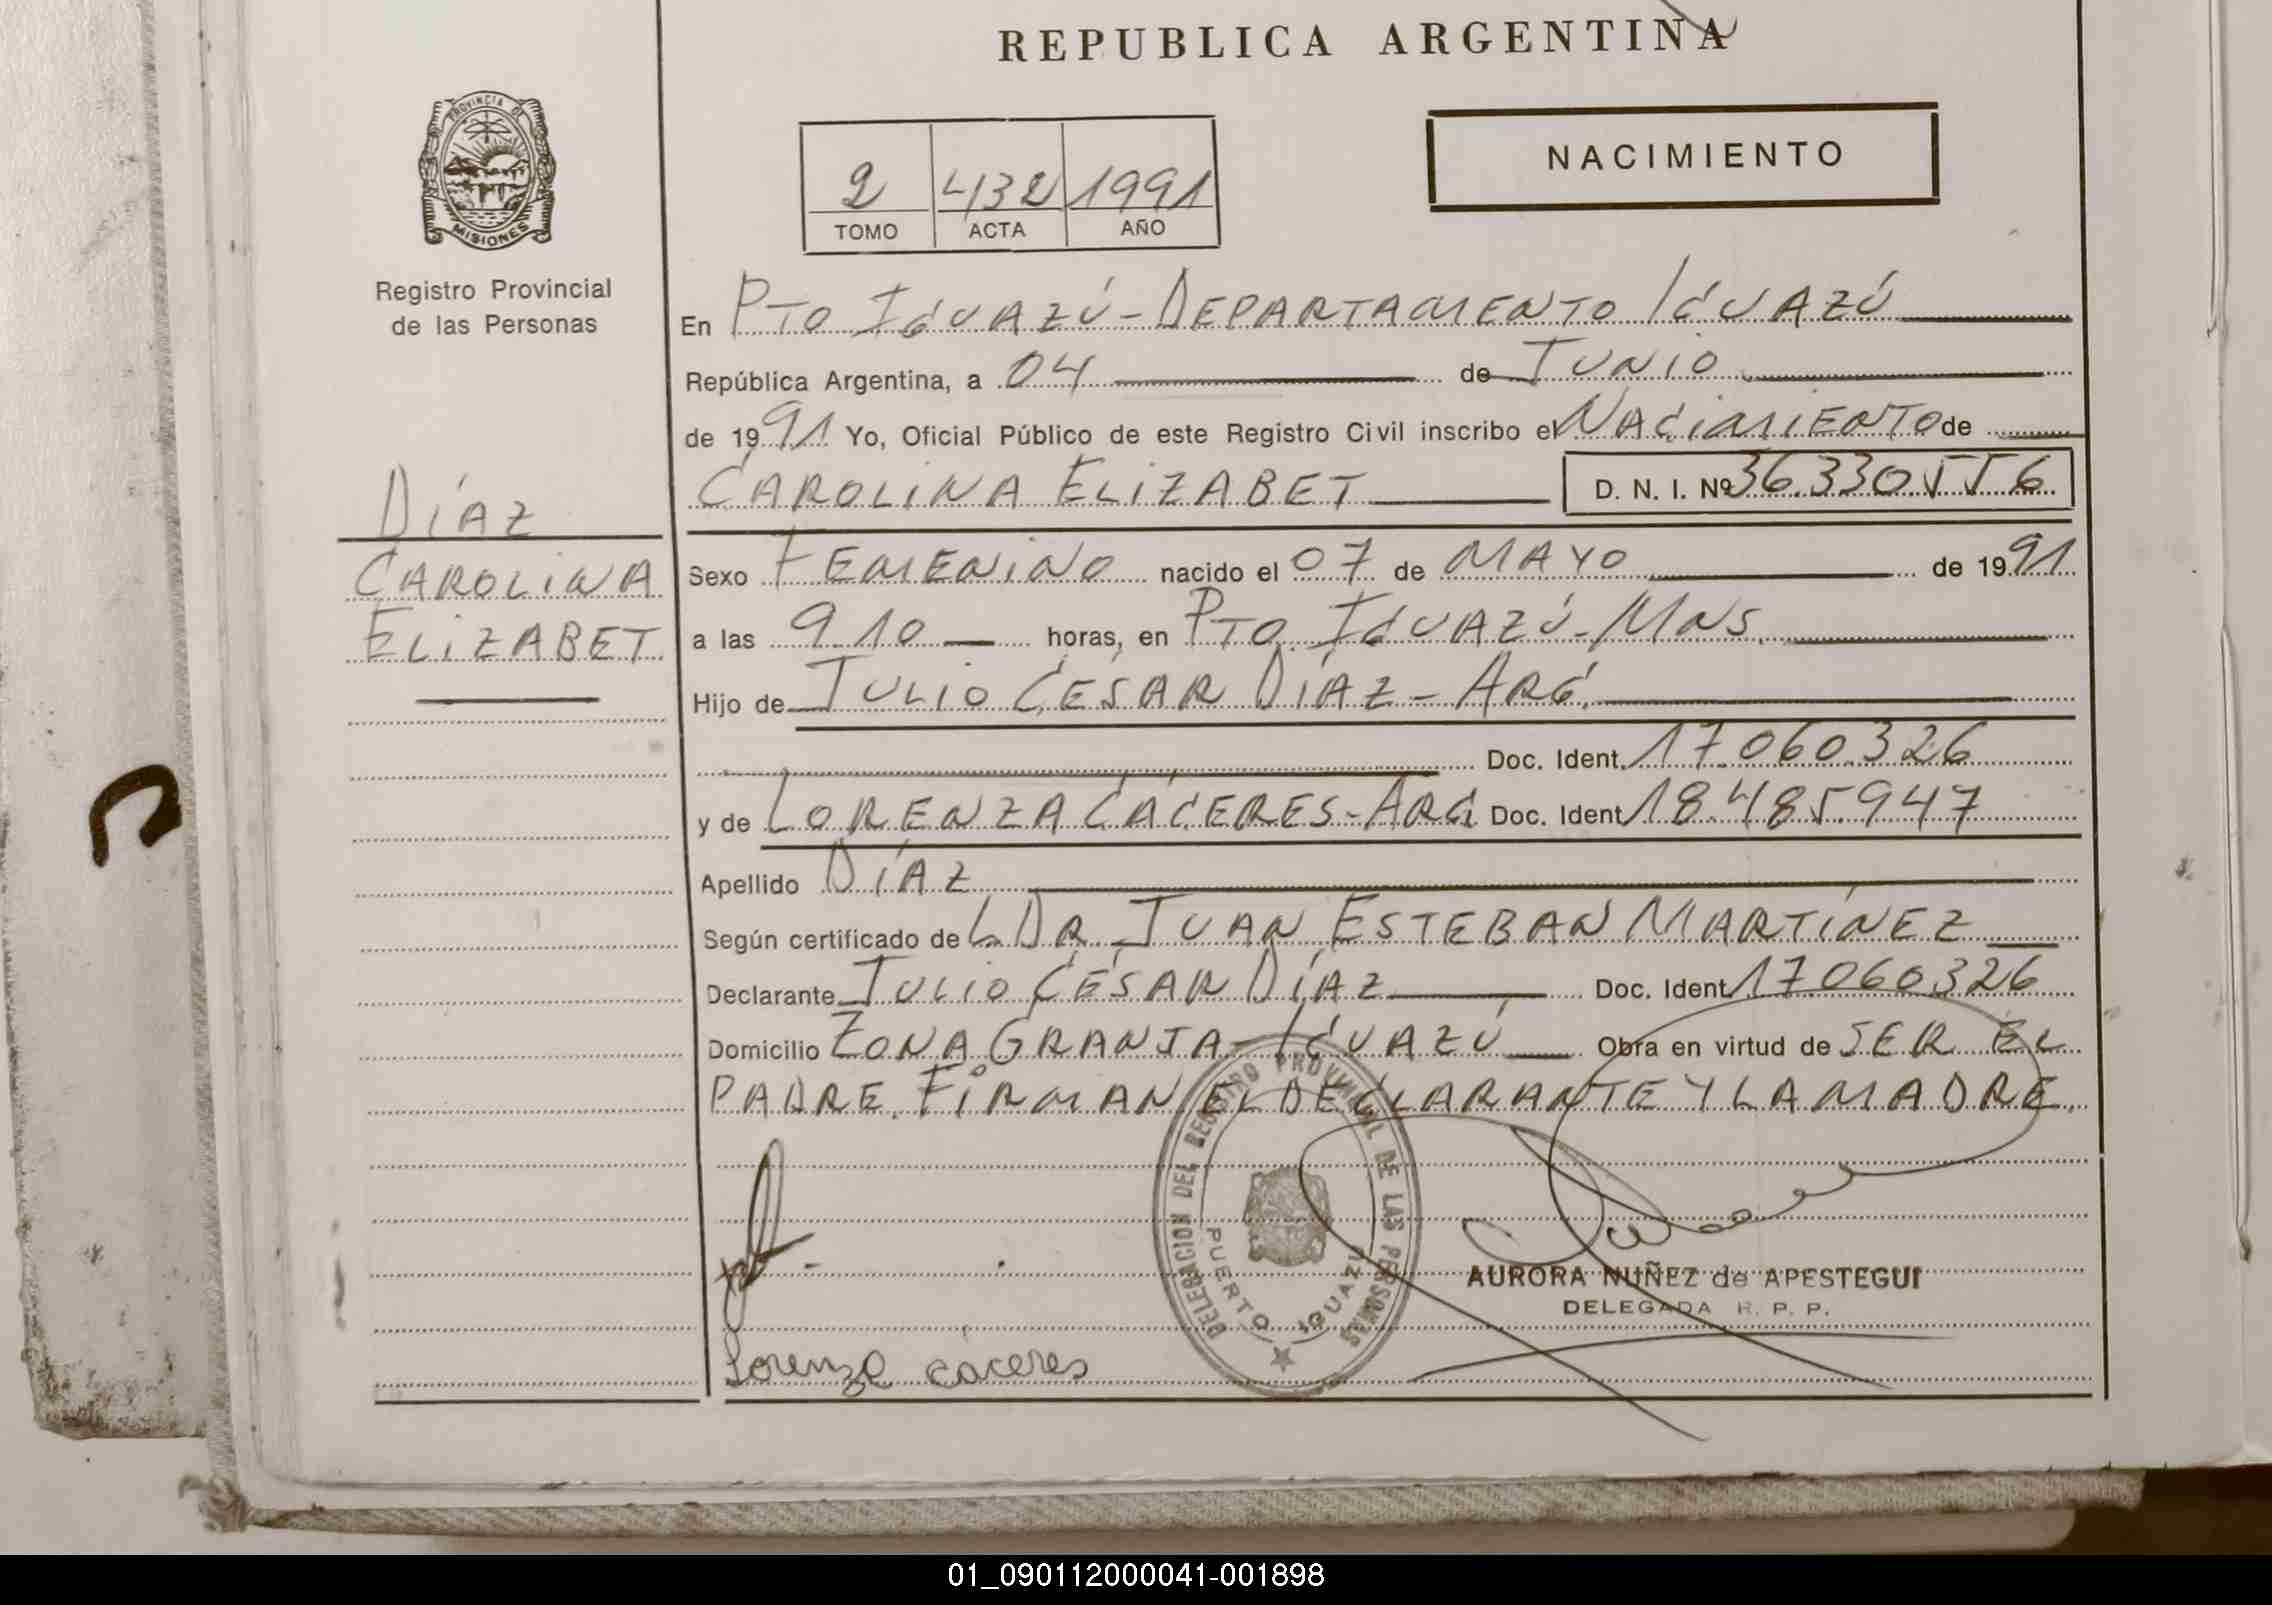 REPUBLICA ARGENTINA
PROVINCIA DE
MISIONES
Registro Provincial
de las Personas
NACIMIENTO
2 432 1991
TOMO ACTA AÑO
En PTO IGUAZÚ - DEPARTAMENTO IGUAZÚ
República Argentina, a 04 de JUNIO
de 1991 Yo, Oficial Público de este Registro Civil inscribo el NACIMIENTO de
CAROLINA ELIZABET D. N. I. Nº 36.330.556
DÍAZ
CAROLINA
ELIZABET
Sexo FEMENINO nacido el 07 de MAYO de 1991
a las 9.10 horas, en PTO. IGUAZÚ - MNS.
Hijo de JULIO CÉSAR DÍAZ - ARG.
Doc. Ident. 17.060.326
y de LORENZA CÁCERES - ARG. Doc. Ident 18.485.947
Apellido DÍAZ
Según certificado de L. DR. JUAN ESTEBAN MARTÍNEZ
Declarante JULIO CÉSAR DÍAZ Doc. Ident 17.060.326
Domicilio ZONA GRANJA - IGUAZÚ Obra en virtud de SER EL
PADRE. FIRMAN EL DECLARANTE Y LA MADRE.
DELEGACION DEL REGISTRO PROVINCIAL DE LAS PERSONAS
PUERTO IGUAZU
AURORA NUÑEZ de APESTEGUI
DELEGADA R. P. P.
Lorenza caceres
01_090112000041-001898